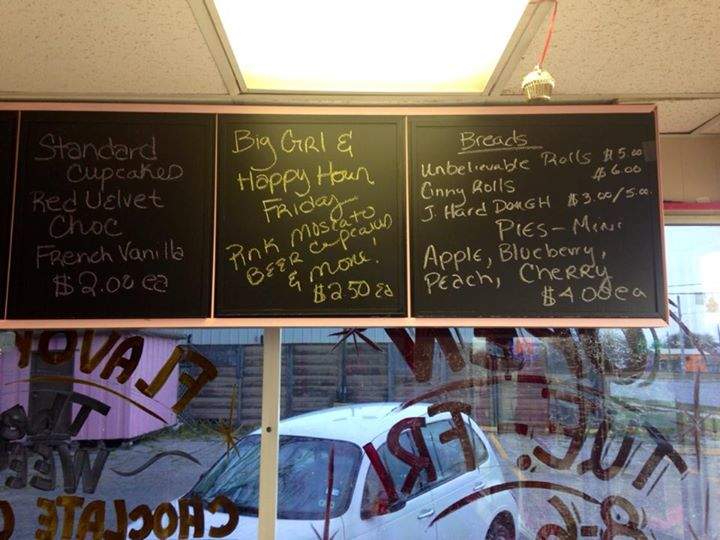 Standard
Cupcakes
Red Velvet
Choc
French Vanilla
$2.00 ea
Big GRL &
Happy Hour
Friday
Pink Moscato
BEER cupcakes
& more!
$2.50 ea
Breads
Unbelievable Rolls $5.00
Cinny Rolls $6.00
J. Hard DOUGH $3.00/5.00
PIES - Mini
Apple, Blueberry,
Peach, Cherry
$4.00 ea
FLAVOR
THE
WEEK
CHOCLATE
OPEN
TUE-FRI
8-6